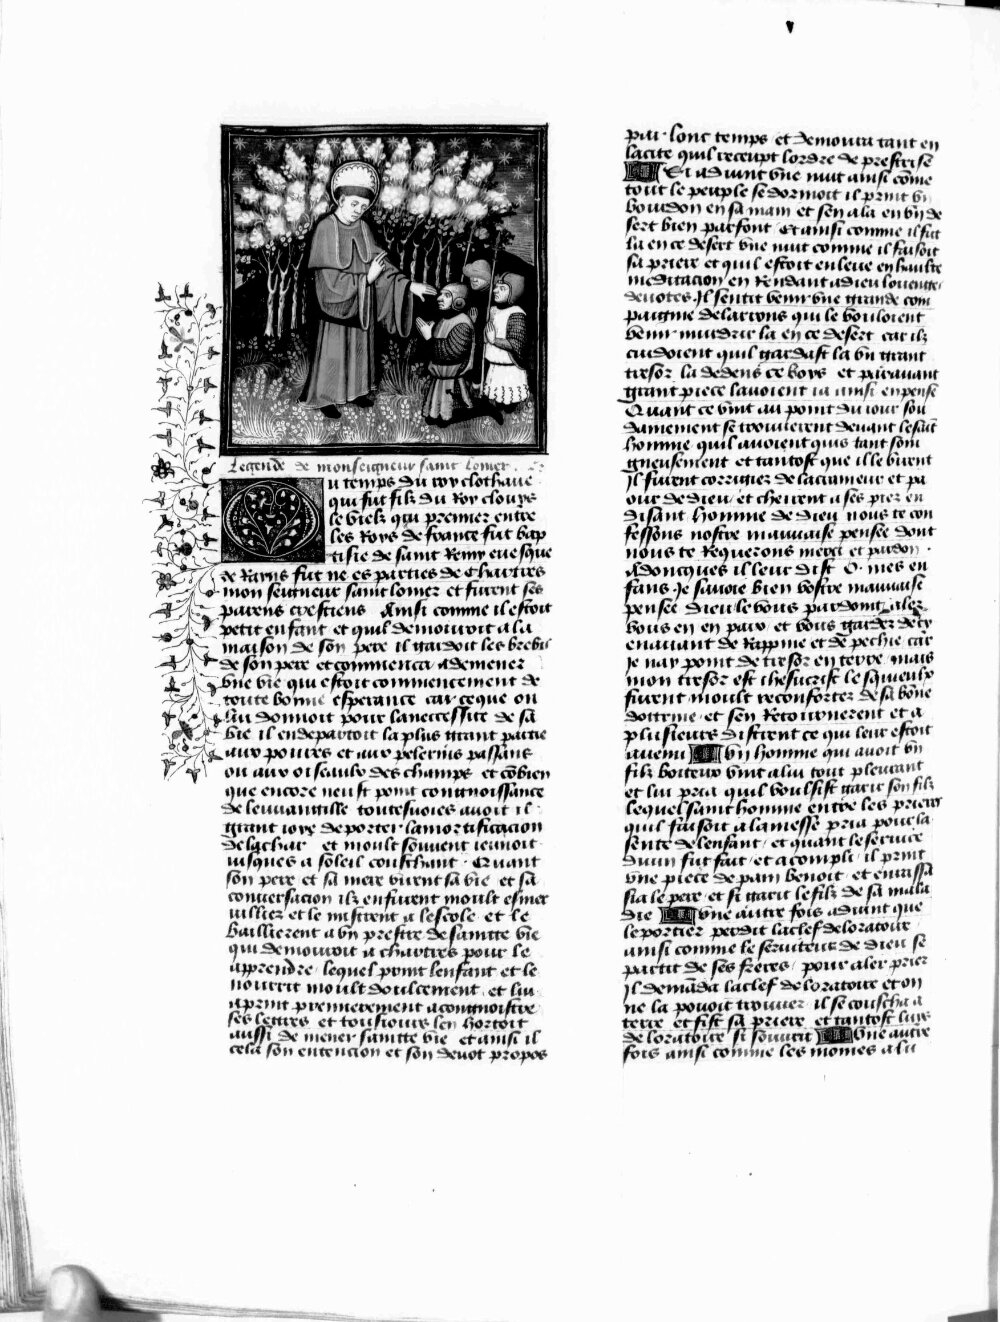 Legende de monseigneur saint Lomer
Du temps du roy clothaire
qui fut filz du Roy clovys
le vielz qui premier entre
les Roys de france fut bap
tisie de saint Remy evesque
de Rayns fut ne es parties de Chartres
mon seigneur saint lomer et furent ses
parens crestiens Ainsi comme il estoit
petit enfant et quil demouroit a la
maison de son pere il gardoit les brebis
de son pere et commenca a demener
vne vie qui estoit commencement de
toute bonne esperance car ce que on
lui donnoit pour la neccessite de sa
vie il en departoit la plus grant partie
aux poures et aux pelerins passans
ou aux oiseaulx des champs et cōbien
que encore neust point congnoissance
de leuuangille toutesuoies auoit il
grant ioye de porter la mortificacion
de la char et moult souuent ieunoit
iusques a soleil couschant Quant
son pere et sa mere virent sa vie et sa
conuersacion ilz en furent moult esmer
uilliez et le misrent a lescole et le
baillierent a vn prestre de saintte vie
qui demouroit a chartres pour le
apprendre lequel print lenfant et le
nourrit moult doulcement et lui
aprint premierement a congnoistre
ses lettres et tousiours len hortoit
aussi de mener saintte vie et ainsi il
cela son entencion et son deuot propos
par lonc temps et demoura tant en
la cite quil receupt lordre de prestrise
Et aduint vne nuit ainsi cōme
tout le peuple se dormoit il print vn
bourdon en sa main et sen ala en vn de
sert bien parfont Et ainsi comme il fut
la en ce desert vne nuit comme il faisoit
sa priere et quil estoit enleue en haulte
meditacion en Rendant a dieu louenges
deuotes Il sentit venir vne grande com
paignie de larrons qui le vouloient
venir murdrir la en ce desert car ilz
cuidoient quil gardast la vn grant
tresor la dedens ce boys et par auant
grant piece lauoient ia ainsi en pense
Quant ce vint au point du iour sou
dainement se trouuerent deuant le saīt
homme quil auoient quis tant soin
gneusement et tantost que il le virent
Il furent corrigiez de la crameur et pa
our de dieu et cheirent a ses piez en
disant homme de dieu nous te con
fessons nostre mauuaise pensee dont
nous te Requerons mercy et pardon
Adoncques il leur dist O mes en
fans Je sauoie bien vostre mauuaise
pensee dieu le vous pardoint alez
vous en en paix et vous gardez de cy
en auant de Rappine et de pechie car
Je nay point de tresor en terre mais
mon tresor est ihesucrist lesquieulx
furent moult reconfortez de sa bōne
dottrine et sen Retournerent et a
plusieurs distrent ce qui leur estoit
auenu Vn homme qui auoit vn
filz boiteux vint a lui tout pleurant
et lui pria quil voulsist garir son filz
lequel saint homme entre les prieres
quil faisoit a la messe pria pour la
sente de lenfant et quant le seruice
diuin fut fait et acompli il print
vne piece de pain benoit et enuassa
sia le pere et si garit le filz de sa mala
die Vne autre fois aduint que
le portier perdit la clef de loratoire
ainsi comme le seruiteur de dieu se
partit de ses freres pour aler prier
Il demāda la clef de loratoire et on
ne la pouoit trouuer il se couscha a
terre et fist sa priere et tantost luys
de loratoire si souurit Vne autre
fois ainsi comme les moines a lui